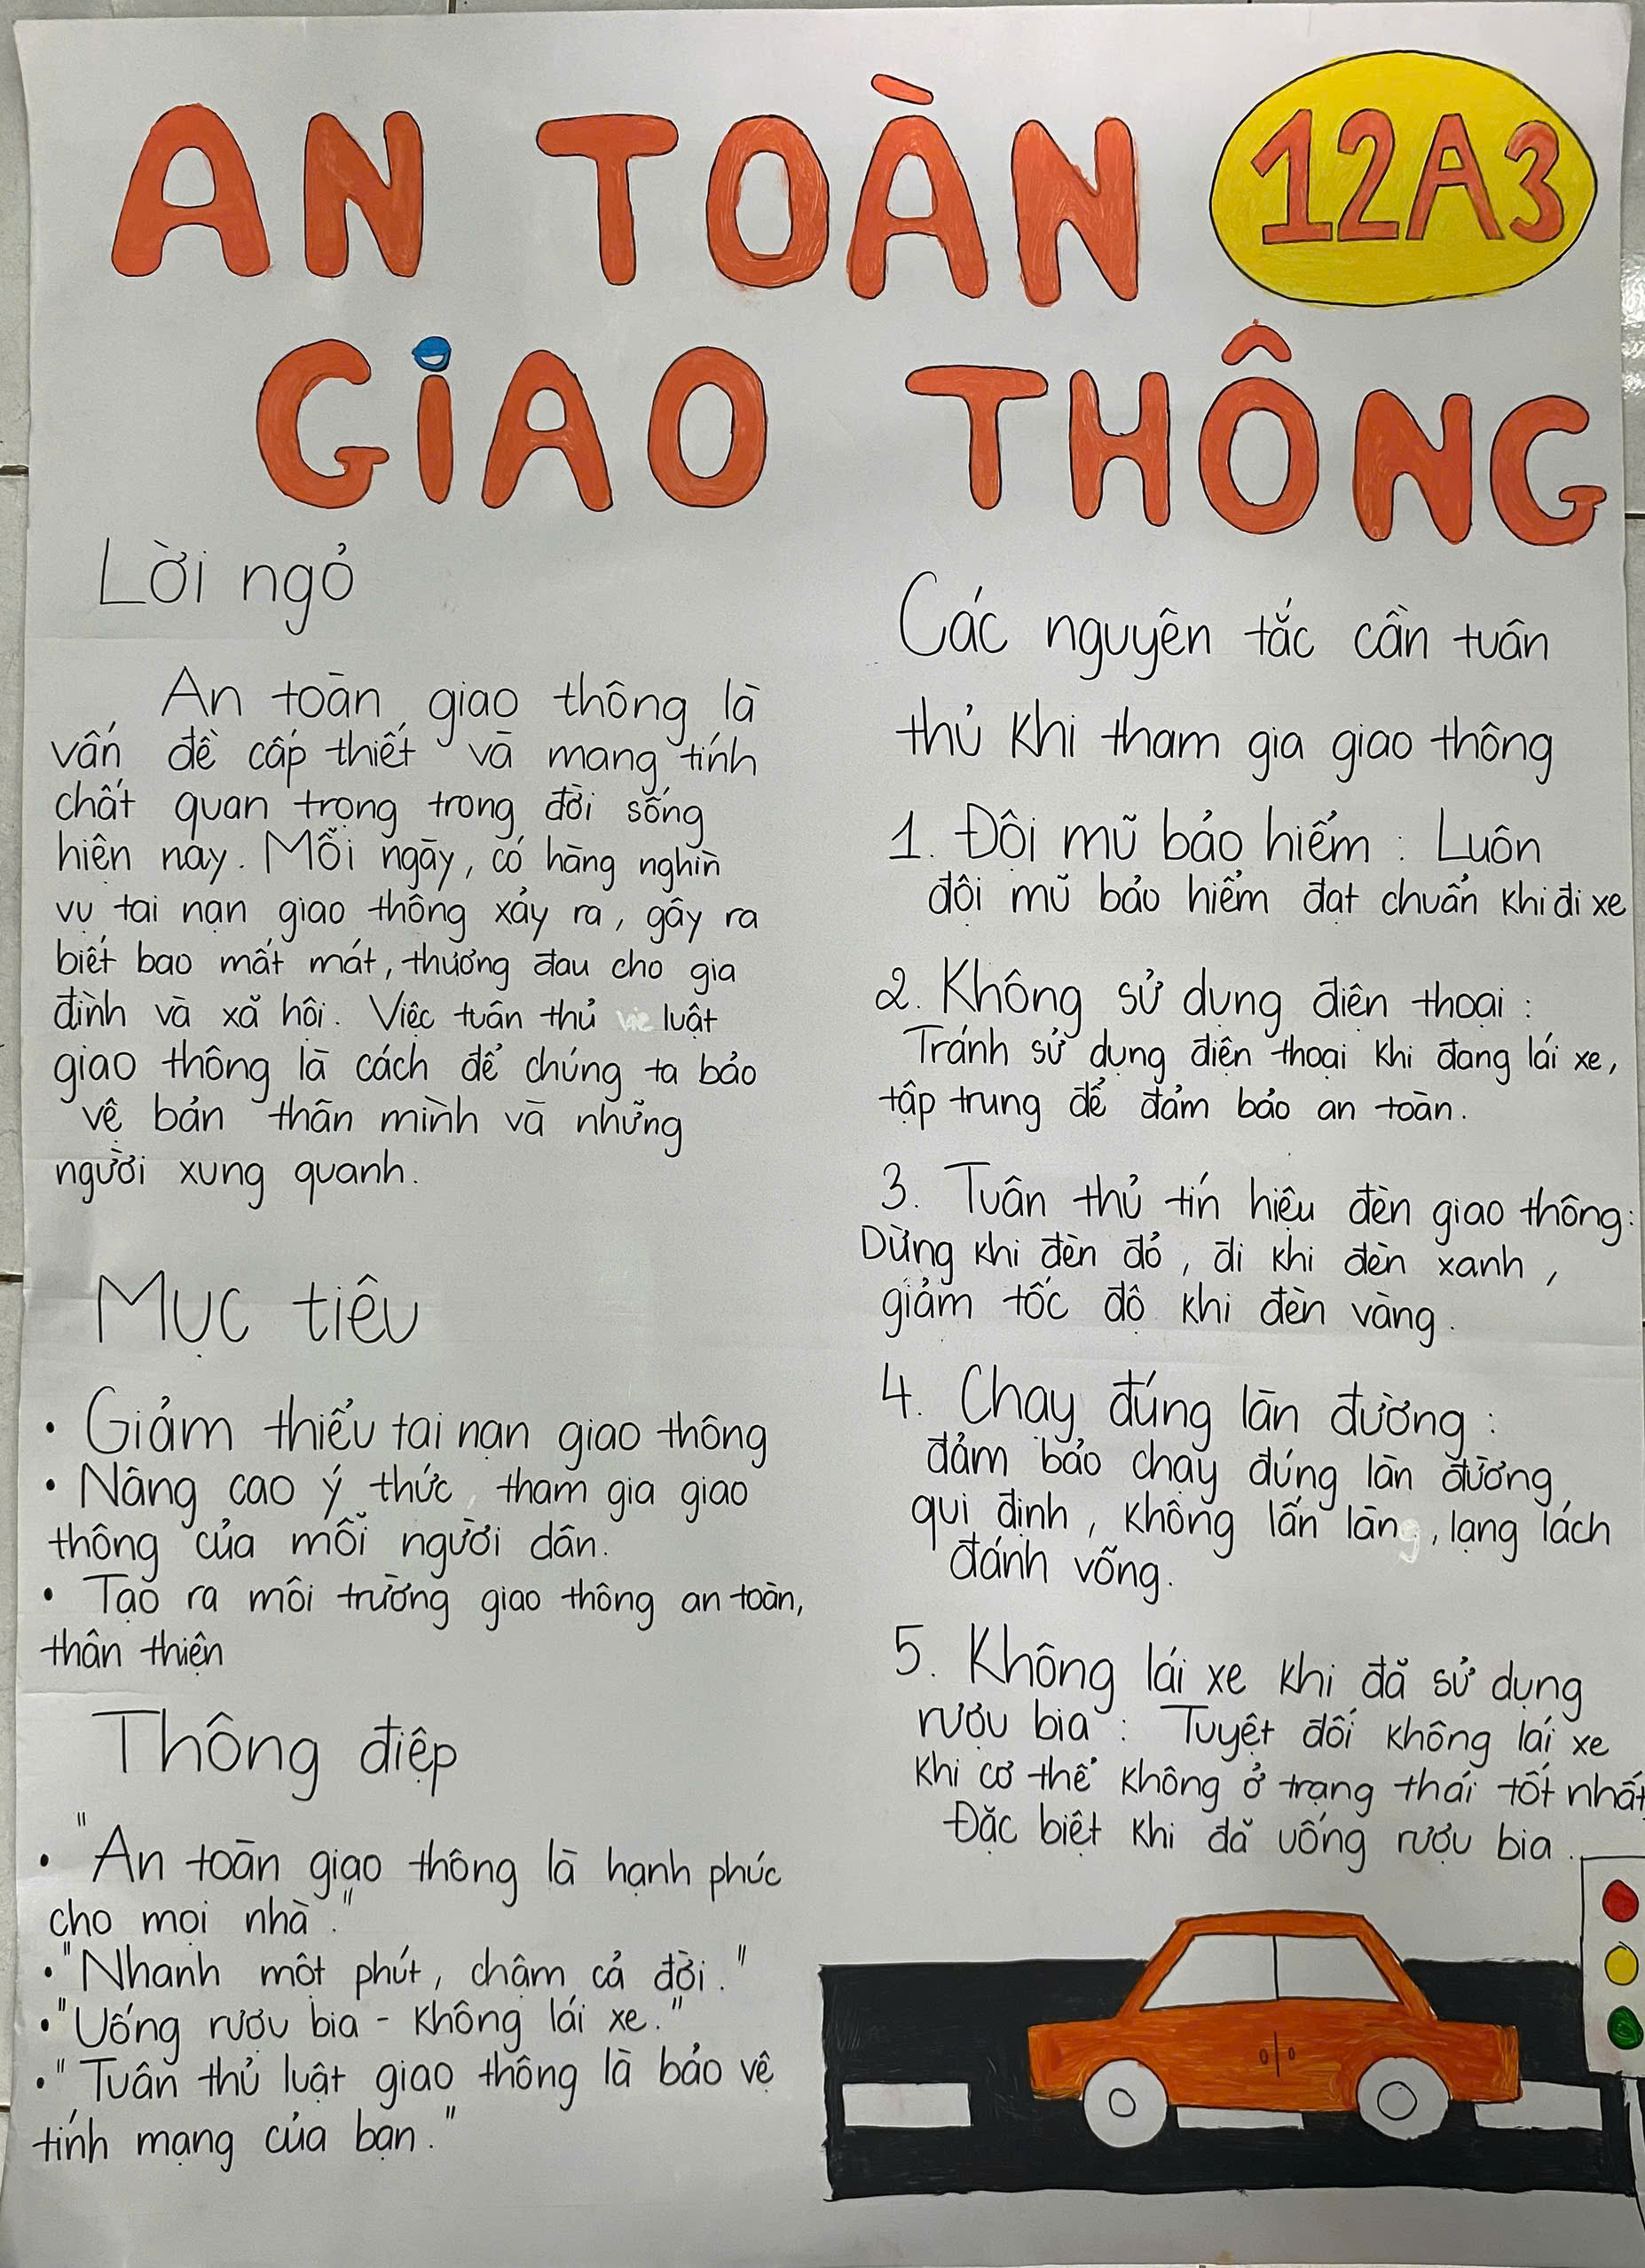 AN TOÀN
12A3
GIAO THÔNG
Lời ngỏ
An toàn giao thông là
vấn đề cấp thiết và mang tính
chất quan trọng trong đời sống
hiện nay. Mỗi ngày, có hàng nghìn
vụ tai nạn giao thông xảy ra, gây ra
biết bao mất mát, thương đau cho gia
đình và xã hội. Việc tuân thủ luật
giao thông là cách để chúng ta bảo
vệ bản thân mình và những
người xung quanh.
Mục tiêu
• Giảm thiểu tai nạn giao thông
• Nâng cao ý thức, tham gia giao
thông của mỗi người dân.
• Tạo ra môi trường giao thông an toàn,
thân thiện
Thông điệp
• "An toàn giao thông là hạnh phúc
cho mọi nhà."
• "Nhanh một phút, chậm cả đời."
• "Uống rượu bia - không lái xe."
• "Tuân thủ luật giao thông là bảo vệ
tính mạng của bạn."
Các nguyên tắc cần tuân
thủ khi tham gia giao thông
1. Đội mũ bảo hiểm: Luôn
đội mũ bảo hiểm đạt chuẩn khi đi xe
2. Không sử dụng điện thoại:
Tránh sử dụng điện thoại khi đang lái xe,
tập trung để đảm bảo an toàn.
3. Tuân thủ tín hiệu đèn giao thông:
Dừng khi đèn đỏ, đi khi đèn xanh,
giảm tốc độ khi đèn vàng.
4. Chạy đúng làn đường:
đảm bảo chạy đúng làn đường
qui định, không lấn làn, lạng lách
đánh võng.
5. Không lái xe khi đã sử dụng
rượu bia: Tuyệt đối không lái xe
khi cơ thể không ở trạng thái tốt nhất
Đặc biệt khi đã uống rượu bia.